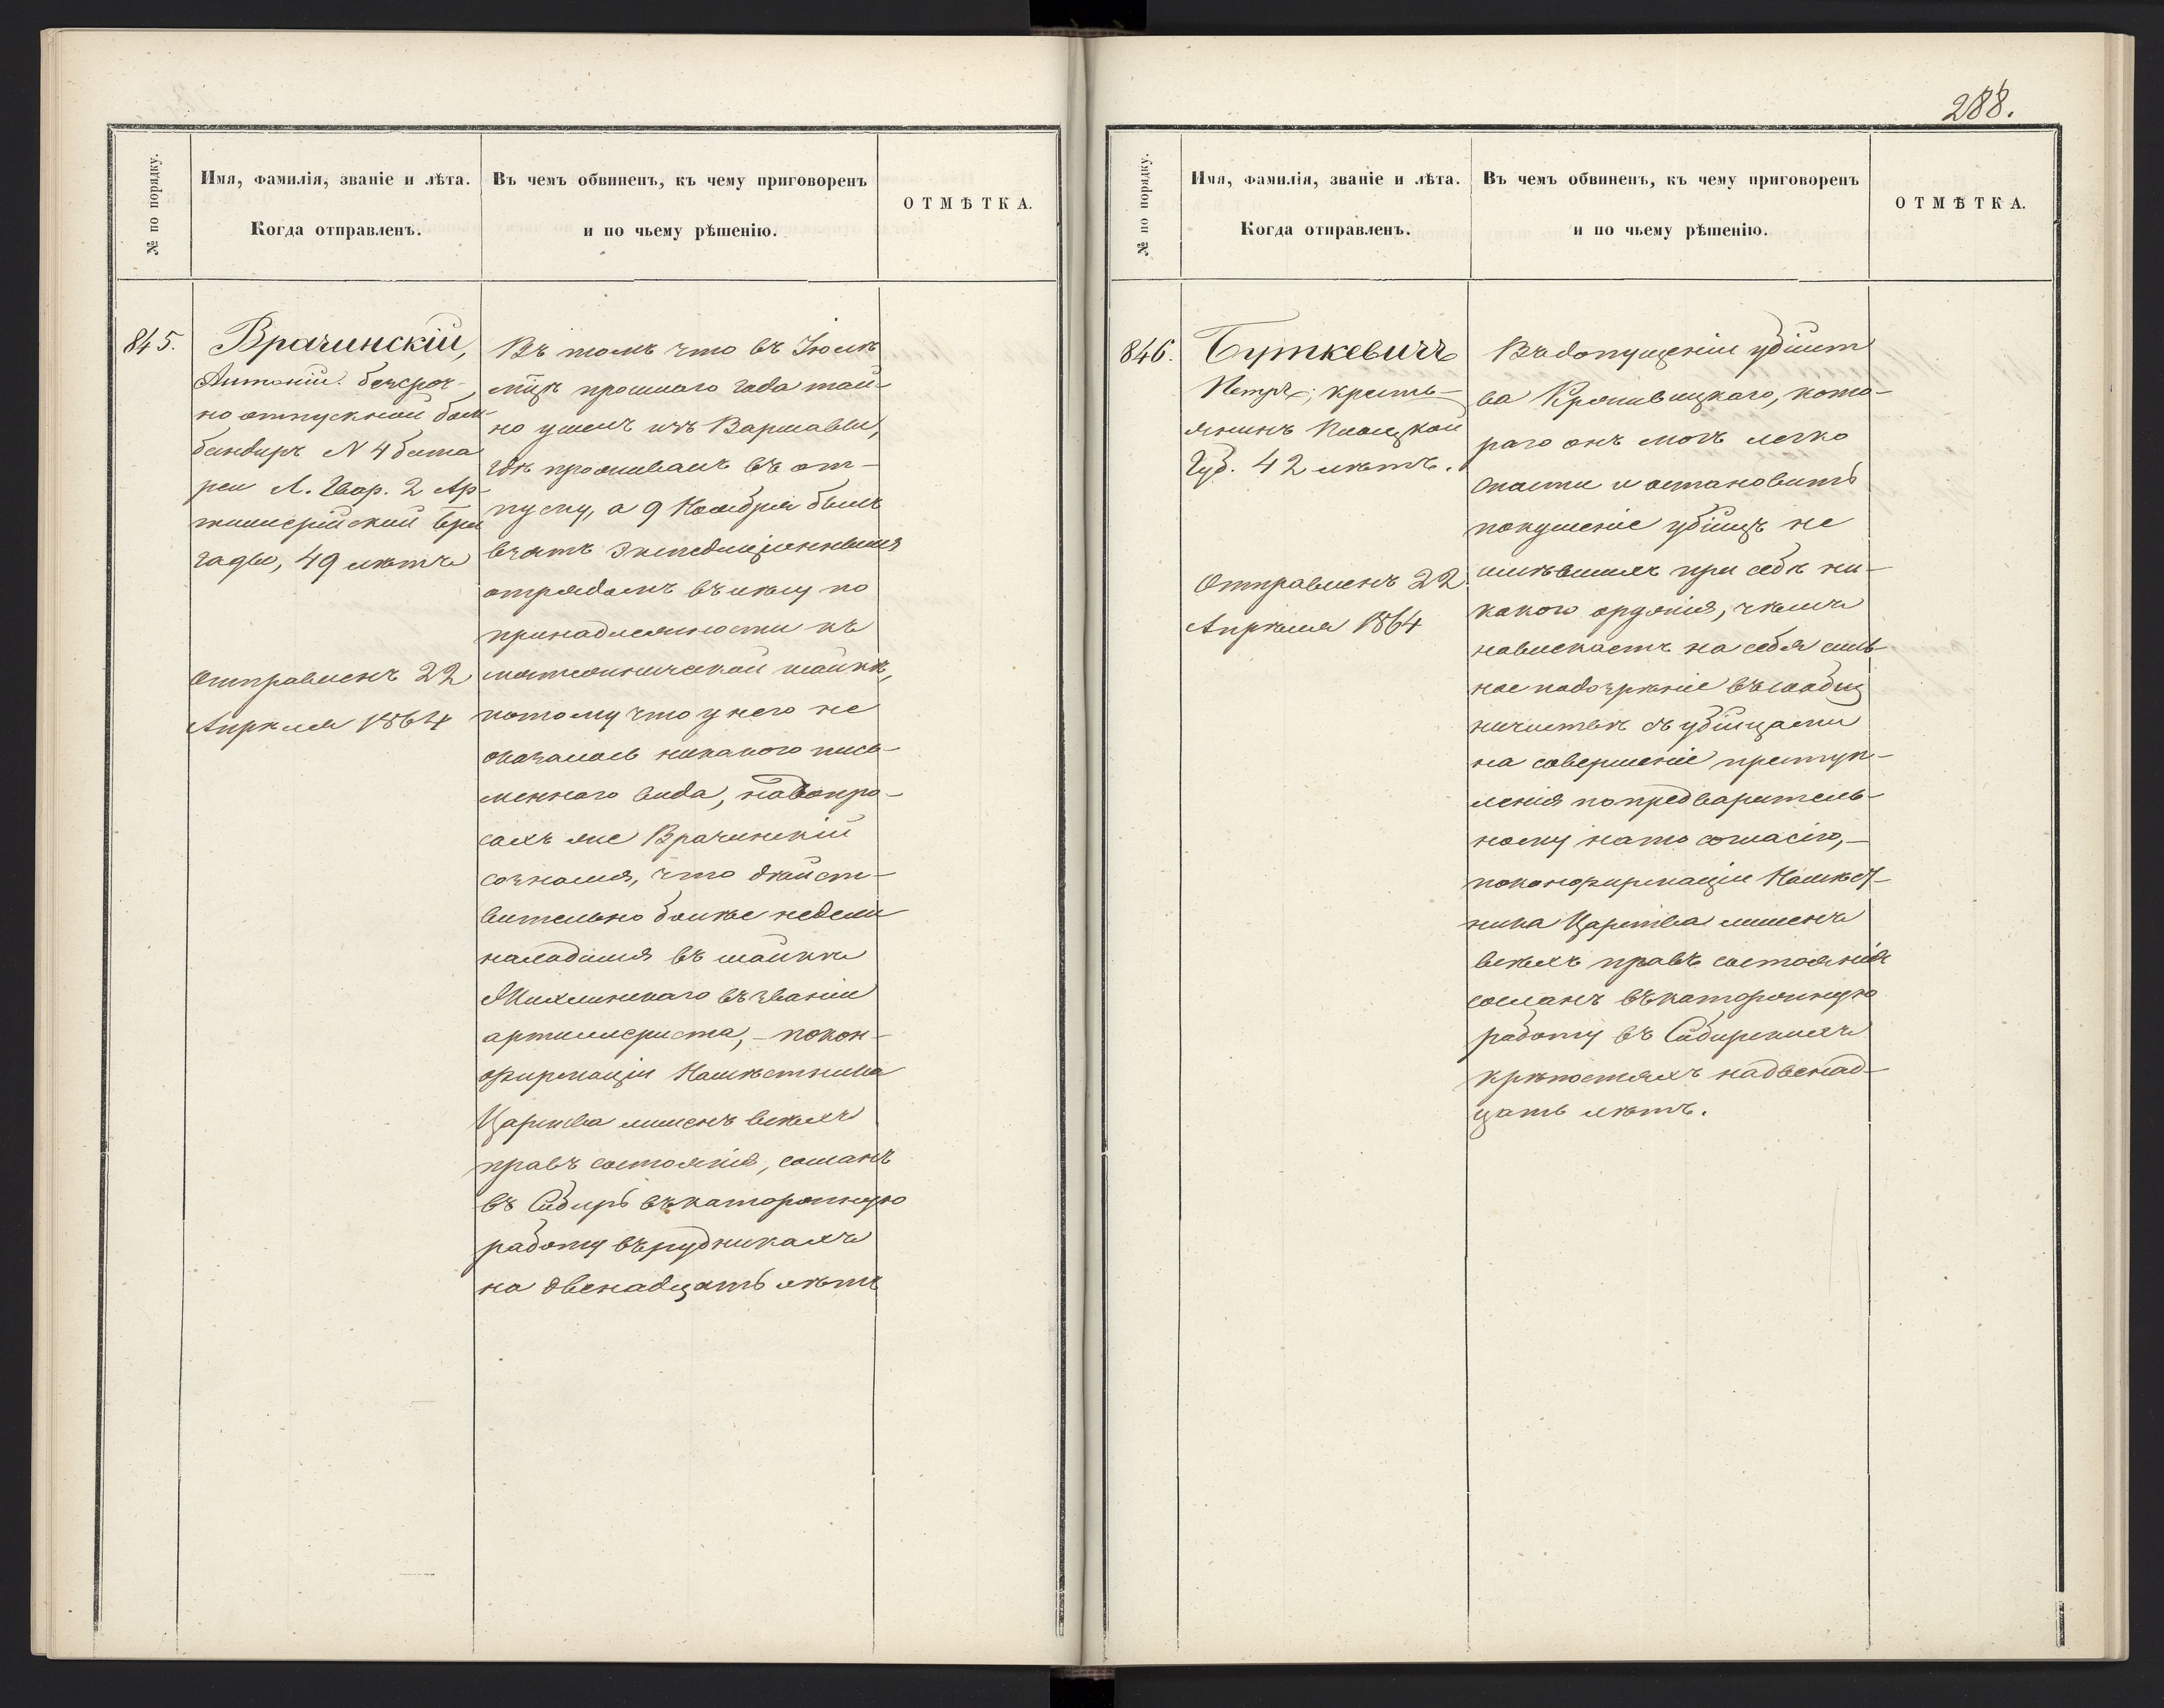 № по порядку.
Имя, фамилія, званіе и лѣта.
Когда отправленъ.
Въ чемъ обвиненъ, къ чему приговоренъ
и по чьему рѣшенію.
ОТМѢТКА.
845.
Врачинскій,
Антоній. безсроч-
но отпускной бом-
бандиръ N 4 бата
реи Л. Гвар. 2 Ар-
тиллерійской бри
гады, 49 лѣтъ
Отправленъ 22
Апрѣля 1864
Въ томъ что въ Іюлѣ
мцѣ прошлаго года тай-
но ушелъ изъ Варшавы,
гдѣ проживалъ въ от-
пуску, а 9 Ноября былъ
взятъ экспедиціоннымъ
отрядомъ въ лѣсу по
принадлежности къ
мятежнической шайкѣ,
потому что у него не
оказалось никакого пись-
меннаго вида, на вопро-
сахъ же Врачинскій
сознался, что дѣйст-
вительно болѣе недели
находился въ шайкѣ
Жихлинскаго въ званіи
артиллериста, - по кон-
фирмаціи Намѣстника
Царства лишенъ всѣхъ
правъ состоянія, сосланъ
въ Сибирь въ каторжную
работу въ рудникахъ
на двенадцать лѣтъ
288.
№ по порядку.
Имя, фамилія, званіе и лѣта.
Когда отправленъ.
Въ чемъ обвиненъ, къ чему приговоренъ
и по чьему рѣшенію.
ОТМѢТКА.
846.
Буткевичъ
Петръ; кресть-
янинъ Плоцкой
Губ. 42 лѣтъ.
Отправленъ 22
Апрѣля 1864
Въ допущеніи убійст
ва Кропивницкаго, кото-
раго онъ могъ легко
спасти и остановить
покушеніе убійцъ не
имѣвшихъ при себѣ ни-
какого орудія, чѣмъ
навлекаетъ на себя силь
ное подозрѣніе въ сообщ
ничествѣ съ убійцами
на совершеніе преступ-
ленія по предваритель-
ному на то согласію, -
по конфирмаціи Намѣст-
ника Царства лишенъ
всѣхъ правъ состоянія
сосланъ въ каторжную
работу въ Сибирскихъ
крѣпостяхъ на двенад-
цать лѣтъ.